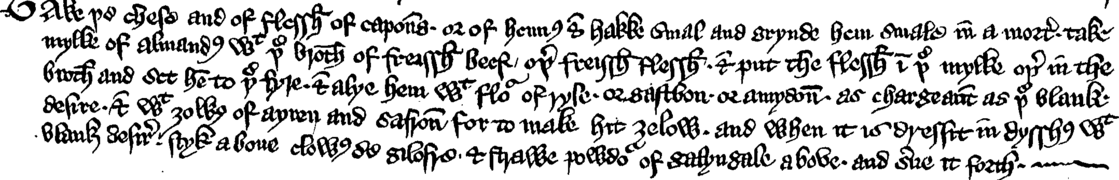 Take þe chese and of flessh of capouns or of hennes & hakke smal and grynde hem smale in a morter. take
mylke of almandes wt þe broth of freissh beef. oþer freissh flessh. & put the flessh in þe mylke oþer in the
broth and set hem to þe fyre. & alye hem wt flour of ryse. or gastbon. or amydoun. as chargeaunt as þe blank
desire. & wt zolkes of ayren and safroun for to make hit zelow. and when it is dressit in dysshes wt
blank desire. styk aboue clowes de gilofre. & strawe powdour of galyngale above. and serue it forth.